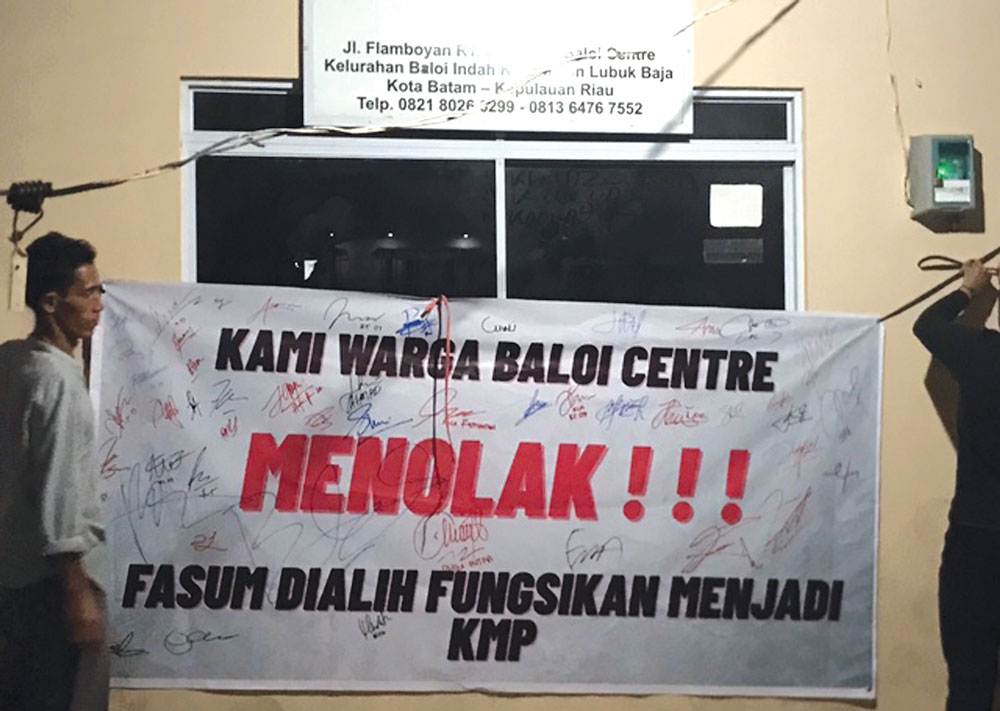 Jl. Flamboyan Baloi Centre
Kelurahan Baloi Indah Lubuk Baja
Kota Batam – Kepulauan Riau
Telp. 0821 8026 3299 - 0813 6476 7552
KAMI WARGA BALOI CENTRE
MENOLAK ! ! !
FASUM DIALIH FUNGSIKAN MENJADI
KMP